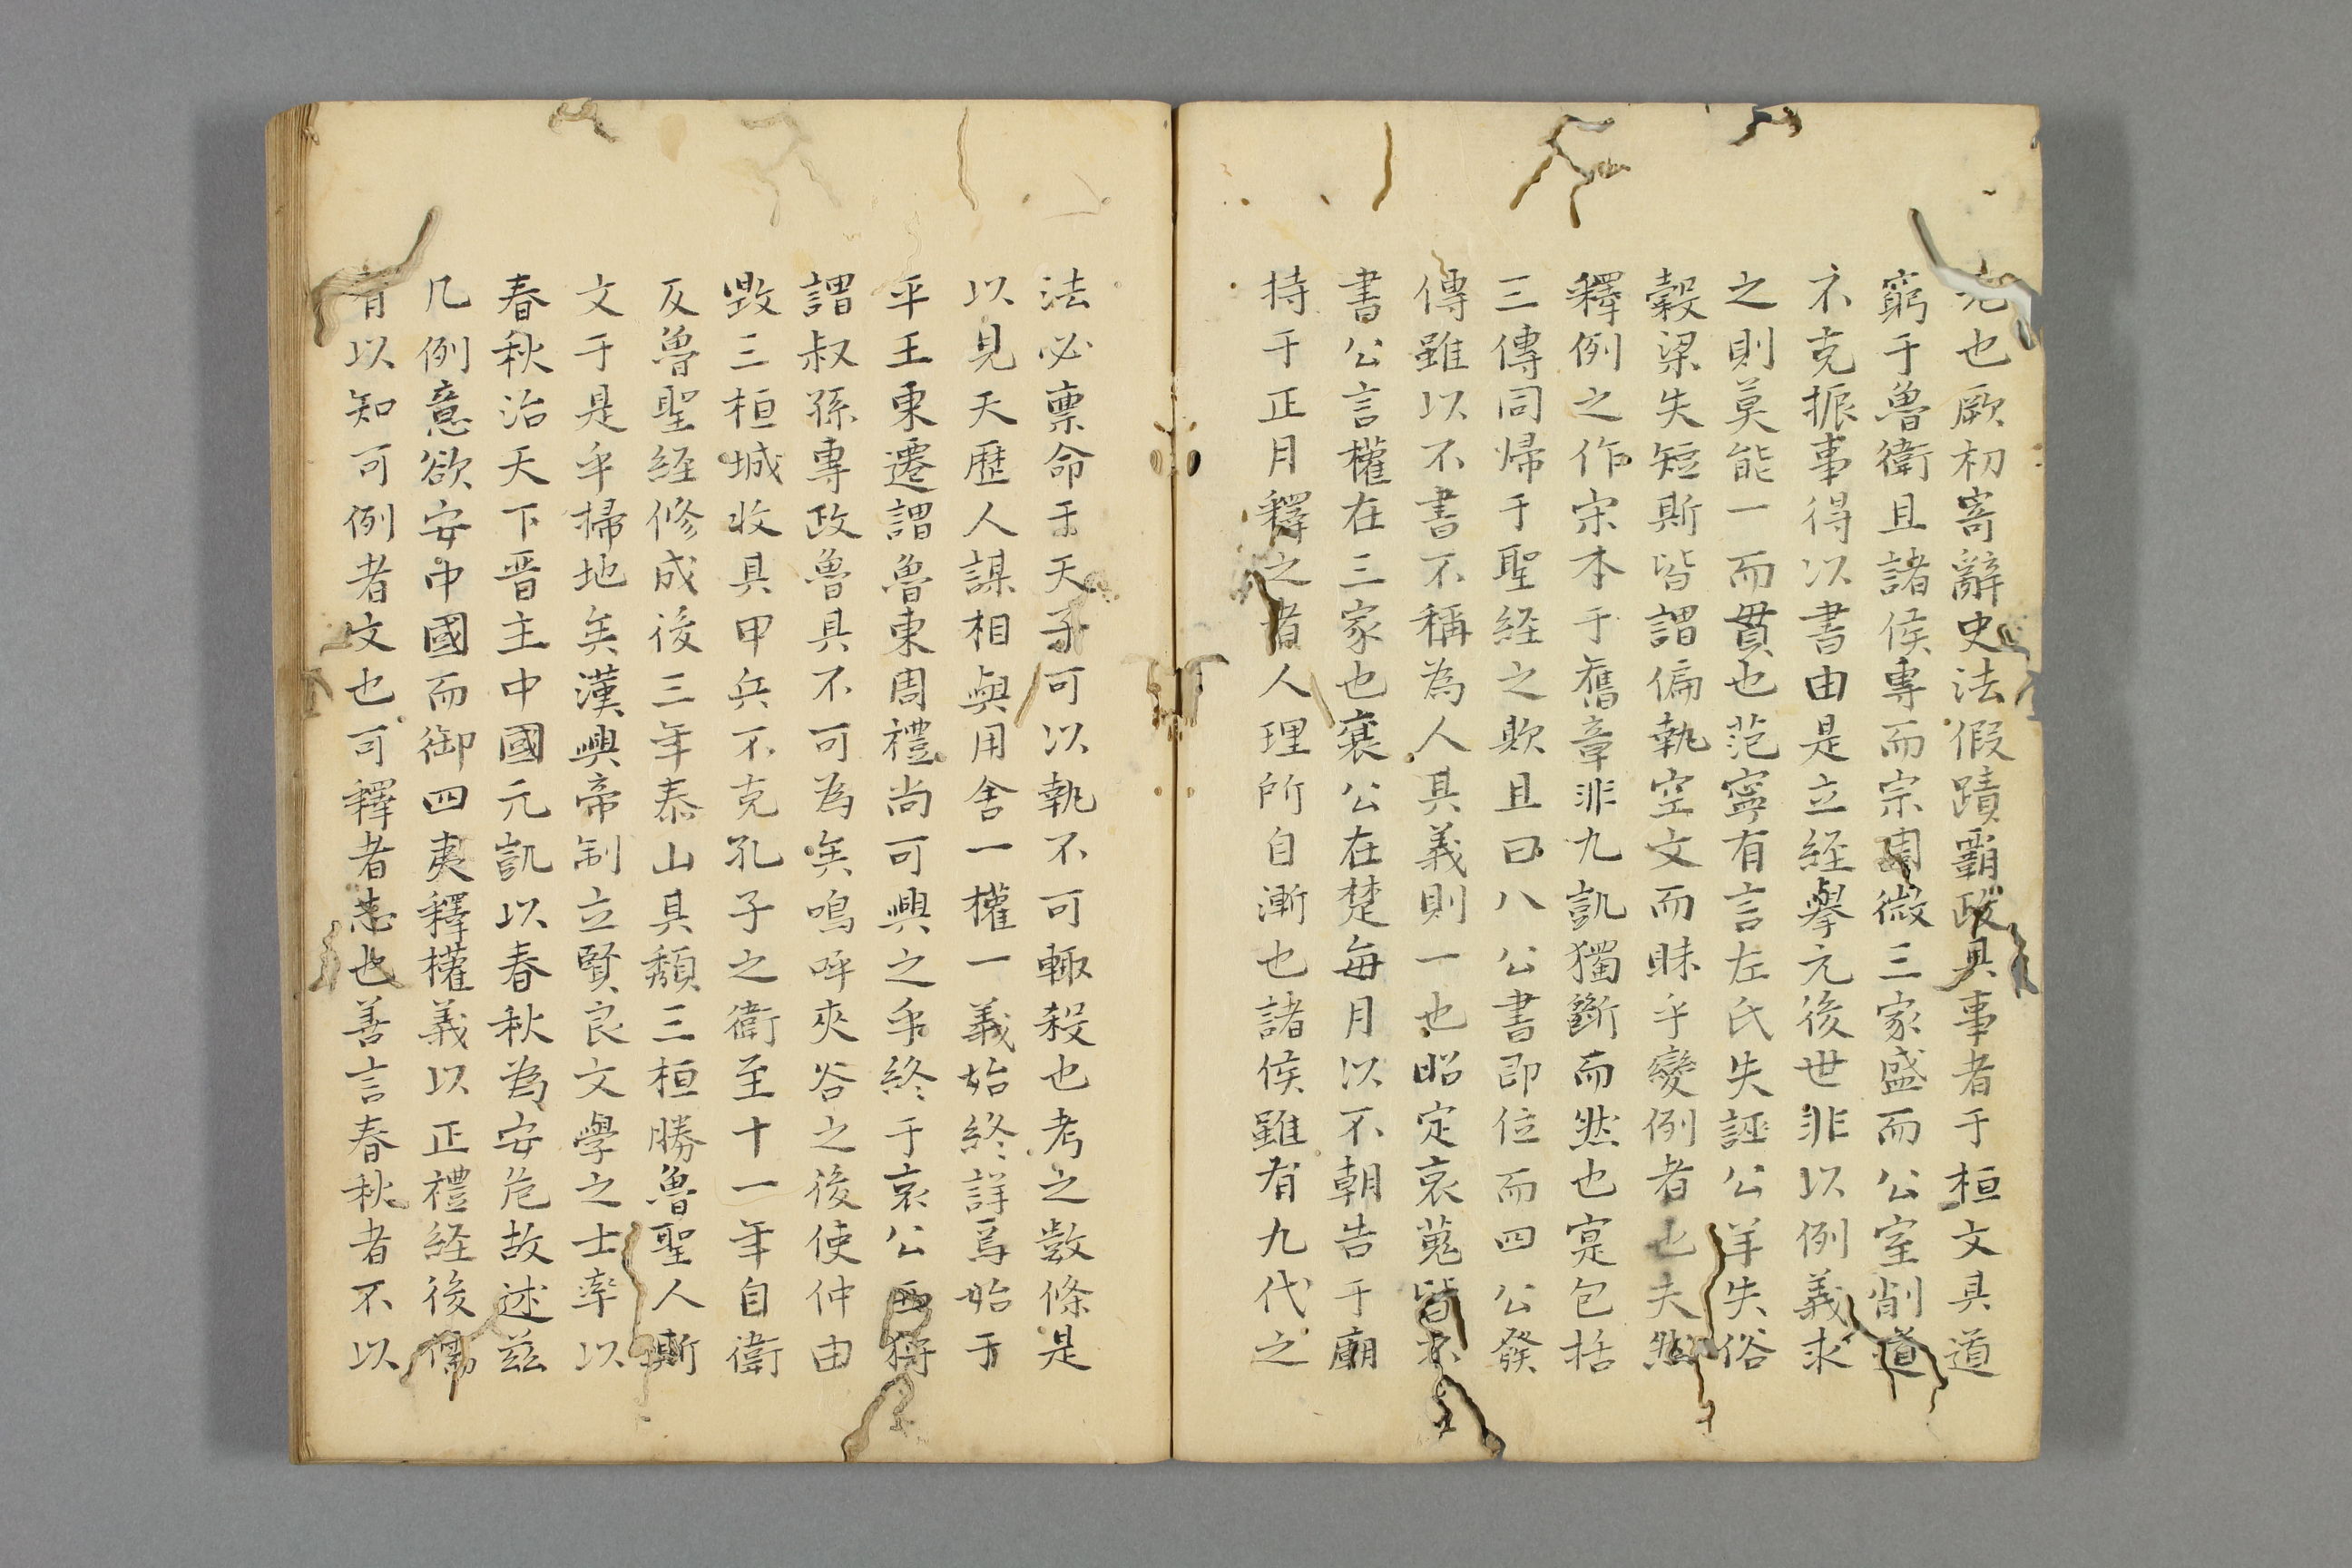 也厥初寄辭史法假蹟霸政具事者于桓文具道
窮于魯衛且諸侯專而宗周微三家盛而公室削道
不克振事得以書由是立経擧元後世非以例義求
之則莫能一而貫也范寧有言左氏失誣公羊失俗
穀梁失短斯皆謂偏執空文而昧乎變例者也夫然
釋例之作宗本于舊章非九凱獨斷而然也寔包括
三傳同帰于聖経之欤且曰八公書即位而四公發
傳雖以不書不稱為人具義則一也昭定哀蒐皆不
書公言權在三家也襄公在楚每月以不朝告于廟
持于正月釋之者人理所自漸也諸侯雖有九代之
法必稟命于天子可以執不可輙殺也考之數條是
以見天歷人謀相與用舍一權一義始終詳焉始于
平王東遷謂魯東周禮尚可興之乎終于哀公西狩
謂叔孫專政魯具不可為矣嗚呼夾谷之後使仲由
毀三桓城收具甲兵不克孔子之衛至十一年自衛
反魯聖経修成後三年泰山具頹三桓勝魯聖人斯
文于是乎掃地矣漢興帝制立賢良文學之士率以
春秋治天下晋主中國元凱以春秋為安危故述玆
凡例意欲安中國而御四夷釋權義以正禮経後儒
有以知可例者文也可釋者志也善言春秋者不以